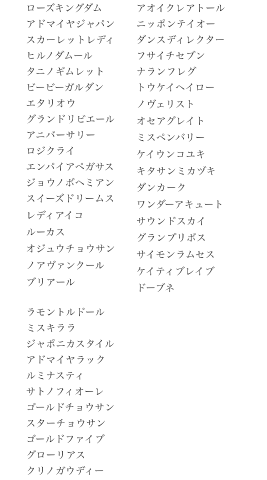 ローズキングダム
アドマイヤジャパン
スカーレットレディ
ヒルノダムール
タニノギムレット
ビービーガルダン
エタリオウ
グランドリビエール
アニバーサリー
ロジクライ
エンパイアペガサス
ジョウノボヘミアン
スイーズドリームス
レディアイコ
ルーカス
オジュウチョウサン
ノアヴァンクール
ブリアール
アオイクレアトール
ニッポンテイオー
ダンスディレクター
フサイチセブン
ナランフレグ
トウケイヘイロー
ノヴェリスト
オセアグレイト
ミスペンバリー
ケイウンコユキ
キタサンミカヅキ
ダンカーク
ワンダーアキュート
サウンドスカイ
グランプリボス
サイモンラムセス
ケイティブレイブ
ドーブネ
ラモントルドール
ミスキララ
ジャポニカスタイル
アドマイヤラック
ルミナスティ
サトノフィオーレ
ゴールドチョウサン
スターチョウサン
ゴールドファイブ
グローリアス
クリノガウディー